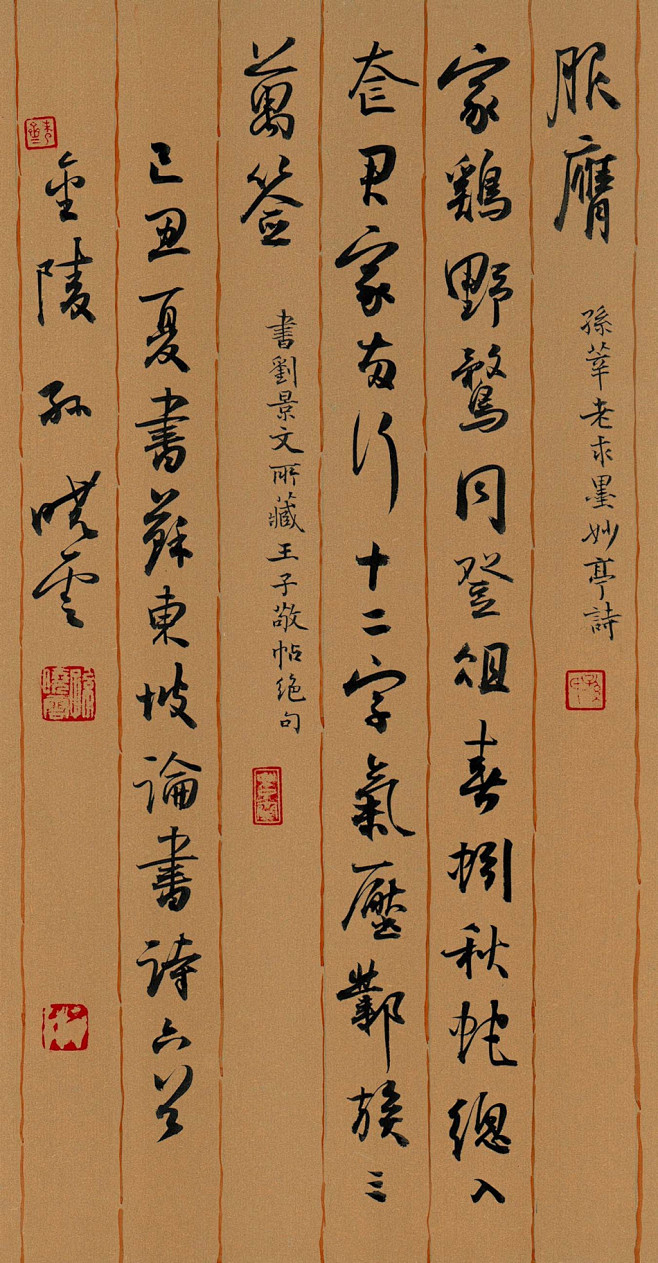 服膺 孫莘老求墨妙亭詩
家鷄野鶩同登俎春蚓秋蛇總入
奁君家两行十二字氣壓鄴侯三
萬签 書劉景文所藏王子敬帖絕句
己丑夏書蘇東坡論書詩六首
金陵孫曉雲